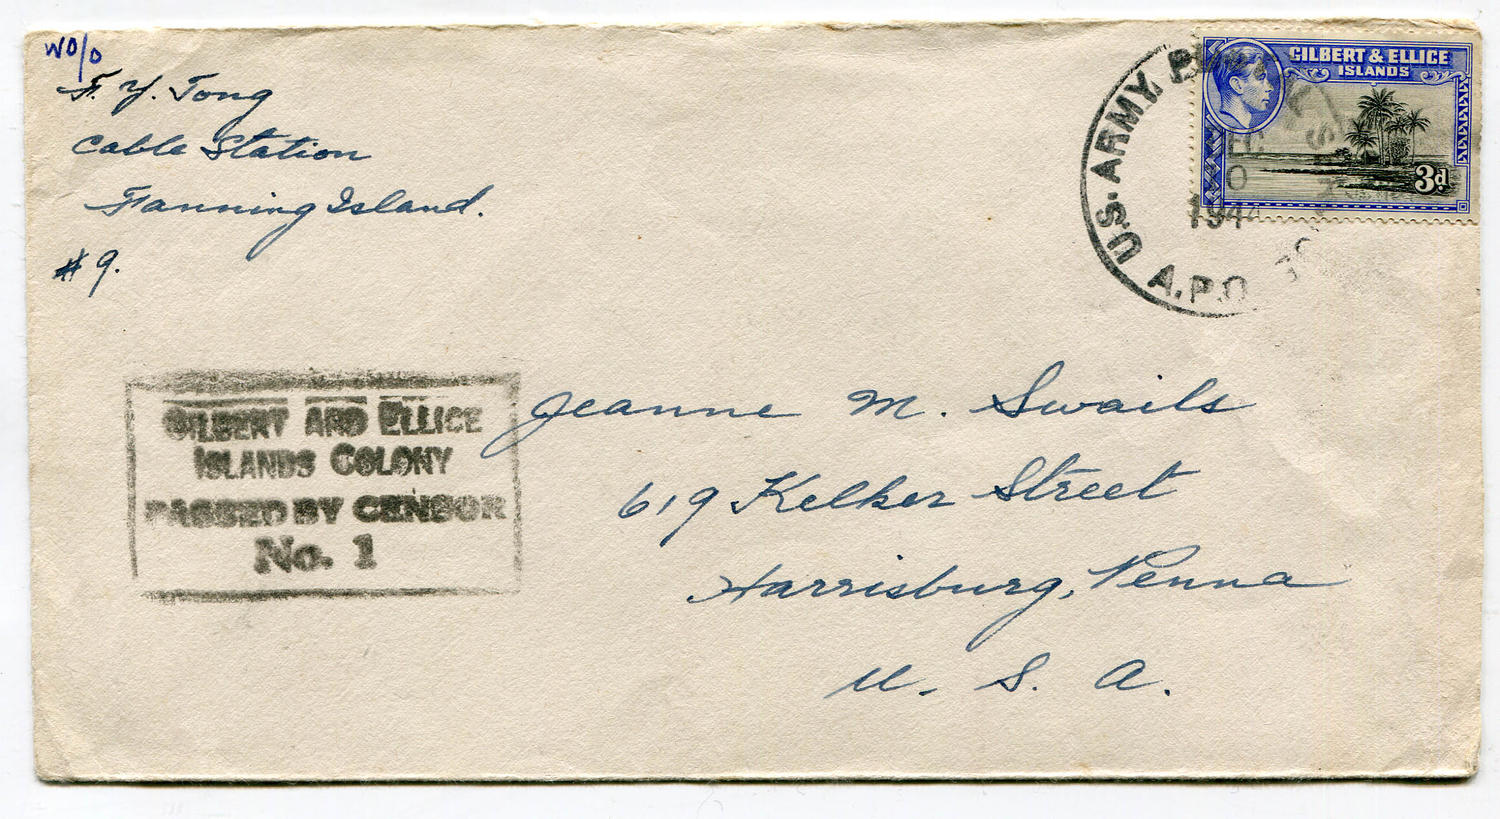 WO/O
F. Y. Tong
Cable Station
Fanning Island.
#9.
U.S. ARMY.
1944
A.P.O.
GILBERT & ELLICE
ISLANDS
3d
GILBERT AND ELLICE
ISLANDS COLONY
PASSED BY CENSOR
No. 1
Jeanne M. Swails
619 Kelker Street
Harrisburg, Penna
U. S. A.